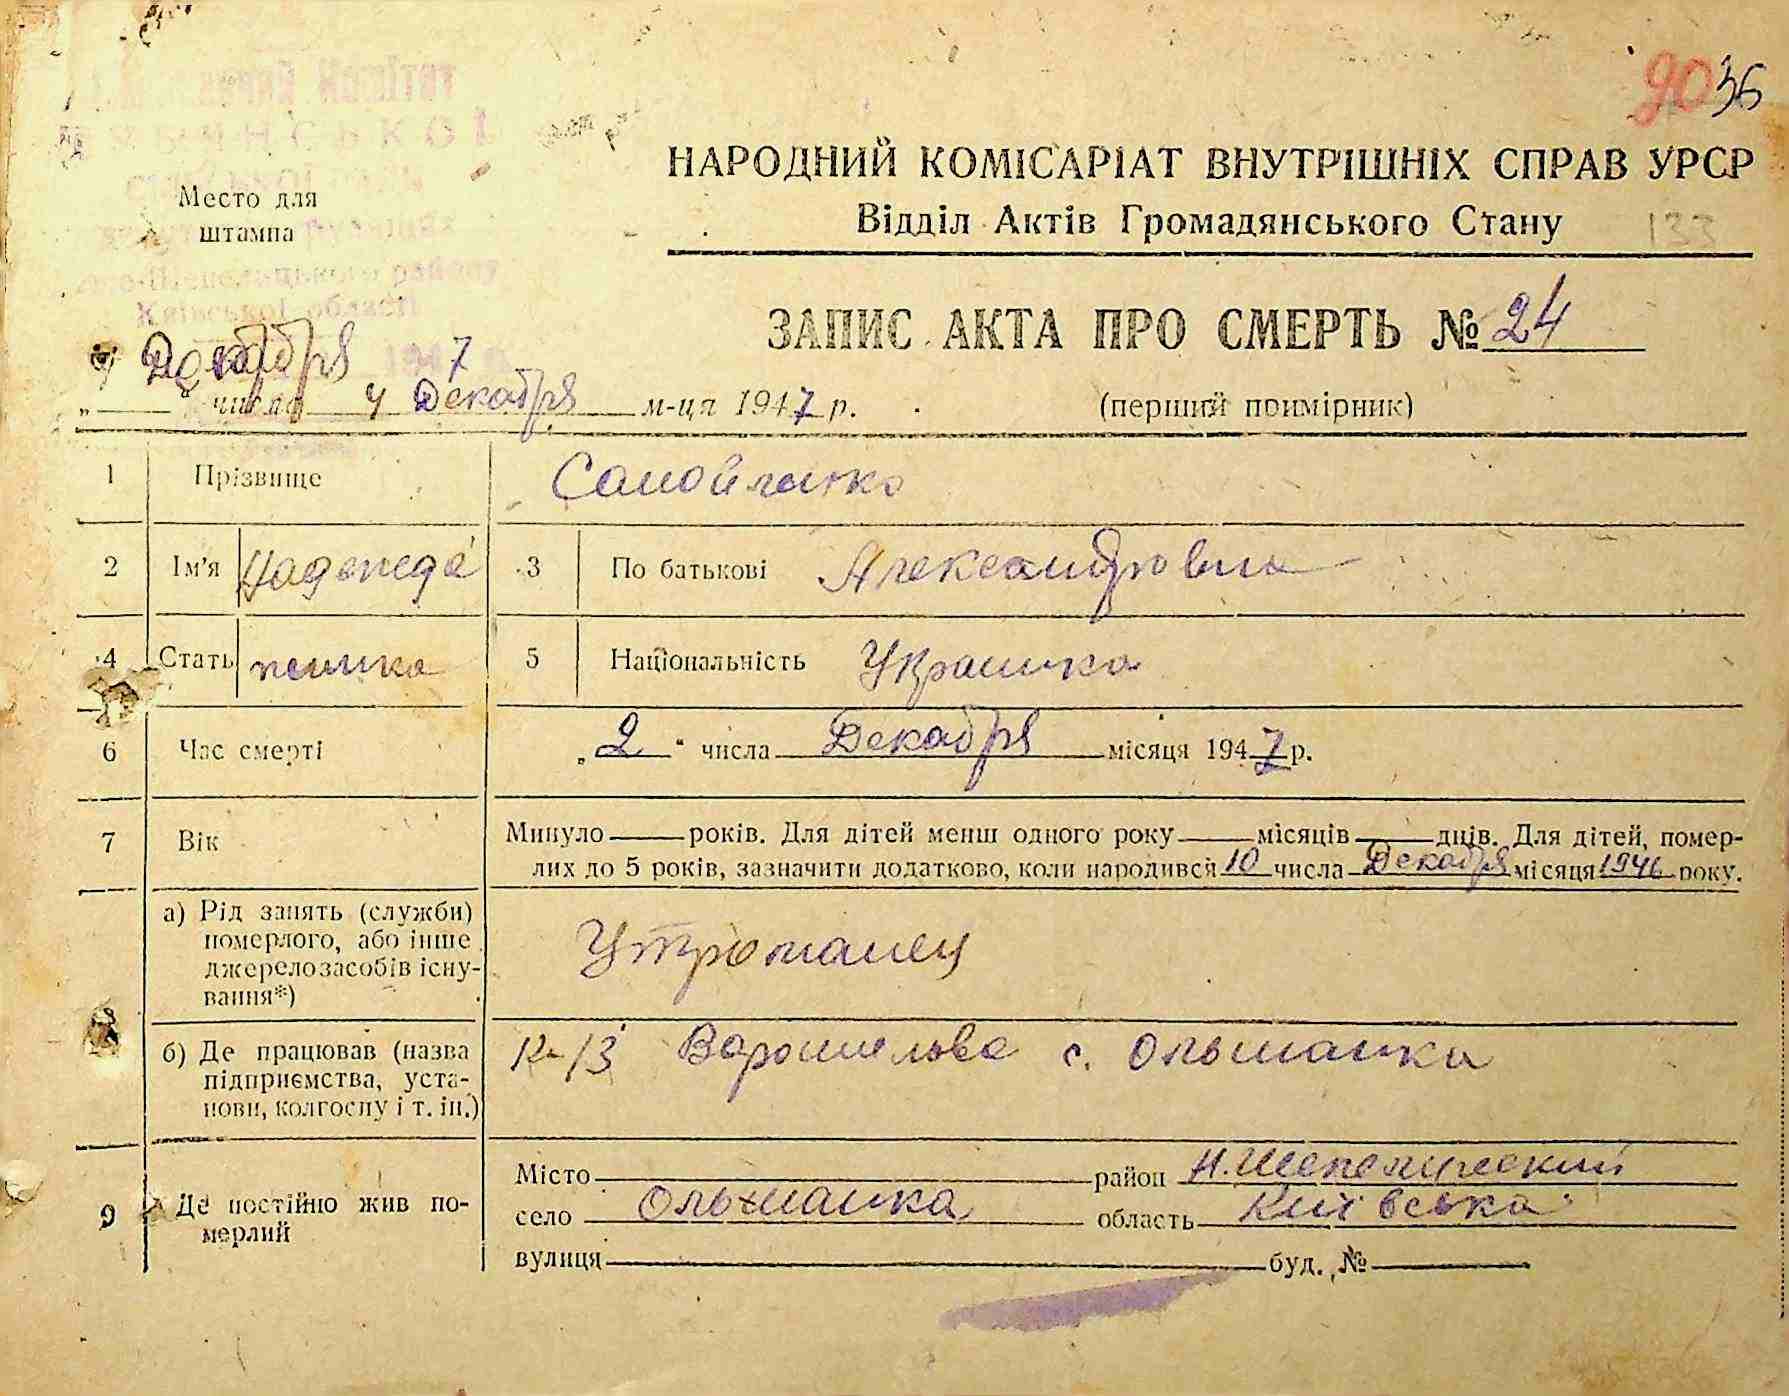 90 36
НАРОДНИЙ КОМІСАРІАТ ВНУТРІШНІХ СПРАВ УРСР
Відділ Актів Громадянського Стану
133
Место для
штампа
району
Київської області
ЗАПИС АКТА ПРО СМЕРТЬ № 24
Декабря 7
„ “ числа 4 Декабря м-ця 1947 р.
(перший примірник)
1 Прізвище Самойленко
2 Ім’я Надежда 3 По батькові Александровна
4 Стать женска 5 Національність Украинка
6 Час смерті „2“ числа Декабря місяця 1947 р.
7 Вік Минуло років. Для дітей менш одного року місяців днів. Для дітей, помер-
лих до 5 років, зазначити додатково, коли народився 10 числа Декабря місяця 1946 року.
а) Рід занять (служби)
померлого, або інше
джерело засобів існу-
вання*)
Утриманец
8
б) Де працював (назва
підприємства, уста-
нови, колгоспу і т. ін.)
К-з Ворошилова с. Ольшанка
9 Де постійно жив по-
мерлий
Місто район Н. Шепелический
село Ольшанка область Київська
вулиця буд. №